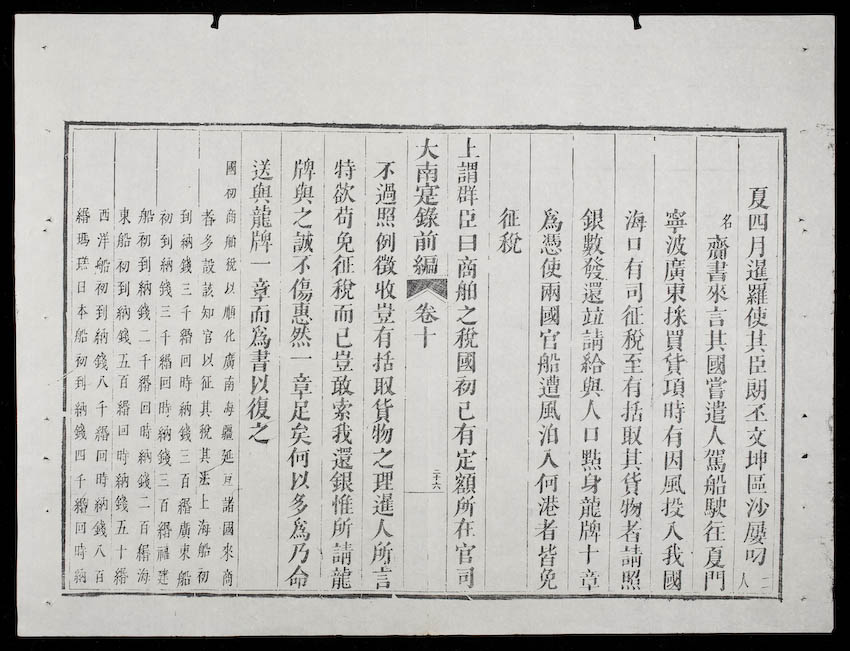 夏四月暹羅使其臣朗丕文坤區沙屢叨二人
名齎書來言其國嘗遣人駕船駛往夏門
寧波廣東採買貨項時有因風投入我國
海口有司征稅至有括取其貨物者請照
銀數發還竝請給與人口點身龍牌十章
爲憑使兩國官船遭風泊入何港者皆免
征稅
上謂群臣曰商舶之稅國初已有定額所在官司
大南寔錄前編 卷十 二十六
不過照例徵收豈有括取貨物之理暹人所言
特欲苟免征稅而已豈敢索我還銀惟所請龍
牌與之誠不傷惠然一章足矣何以多爲乃命
送與龍牌一章而爲書以復之
國初商舶稅以順化廣南海疆延亘諸國來商
者多設該知官以征其稅其法上海船初
到納錢三千緡回時納錢三百緡廣東船
初到納錢三千緡回時納錢三百緡福建
船初到納錢二千緡回時納錢二百緡海
東船初到納錢五百緡回時納錢五十緡
西洋船初到納錢八千緡回時納錢八百
緡瑪𤩍日本船初到納錢四千緡回時納